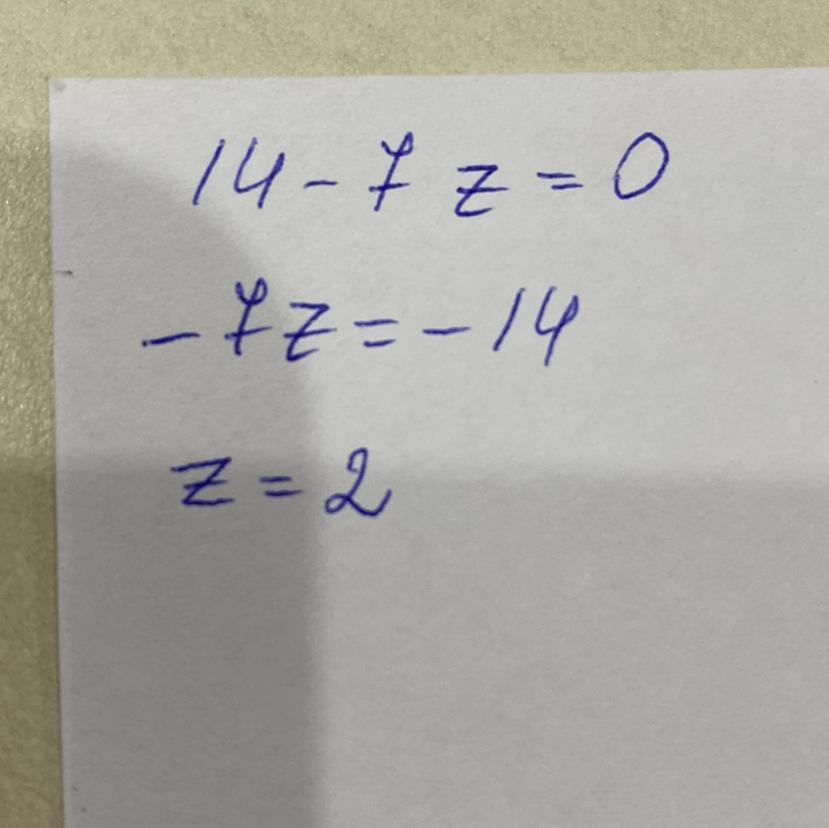 14 - 7 z = 0
- 7z = - 14
z = 2